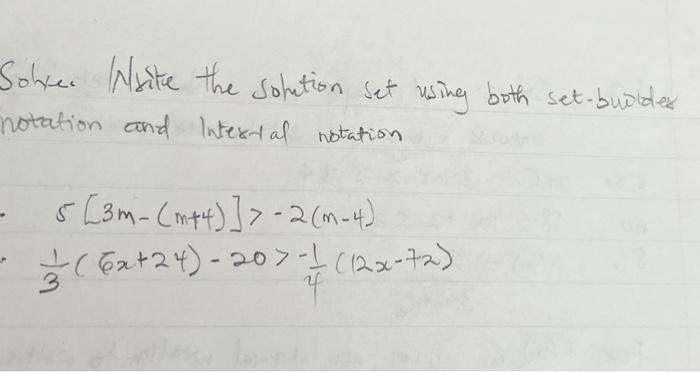 Solve. Write the solution set using both set-builder
notation and Interval notation
. 5 [3m-(m+4)] > -2(m-4)
. 1/3 (6x+24) - 20 > -1/4 (12x-72)